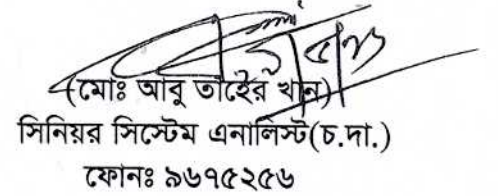 (মোঃ আবু তাহের খান)
সিনিয়র সিস্টেম এনালিস্ট(চ.দা.)
ফোনঃ ৯৬৭৫২৫৬